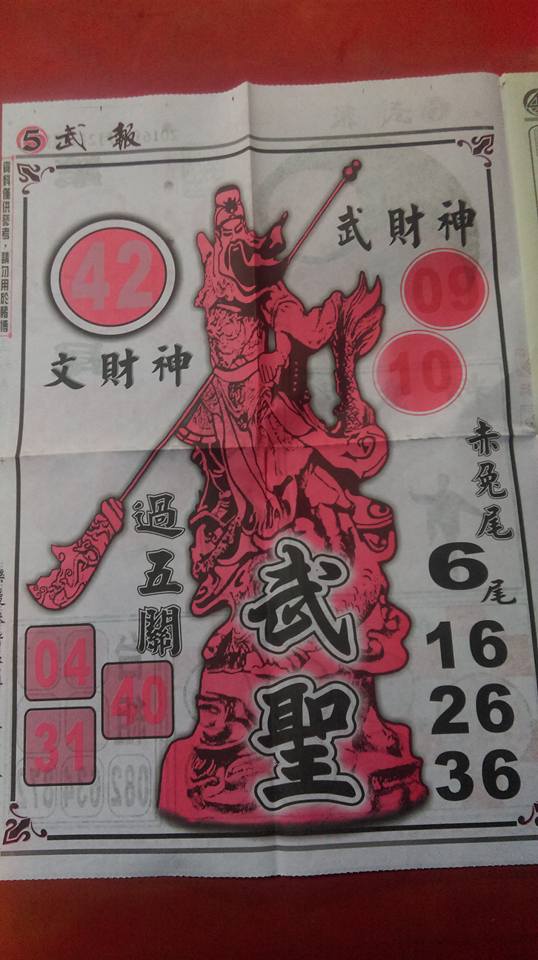 5 武報
資料僅供參考，請勿用於賭博
42
文財神
武財神
09
10
赤兔尾
6尾
16
26
36
過五關
04
40
31
武聖